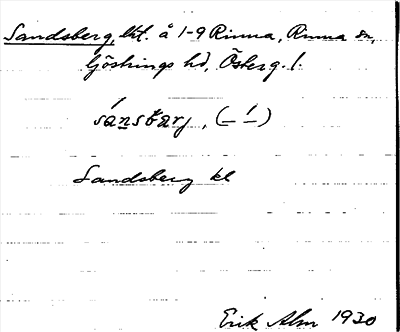 Sandsberg, lht. å 1-9 Rinna, Rinna sn,
Göstrings hd, Österg. l.
sánsbærj, (– –́)
Sandsberg kl
Erik Alm 1930